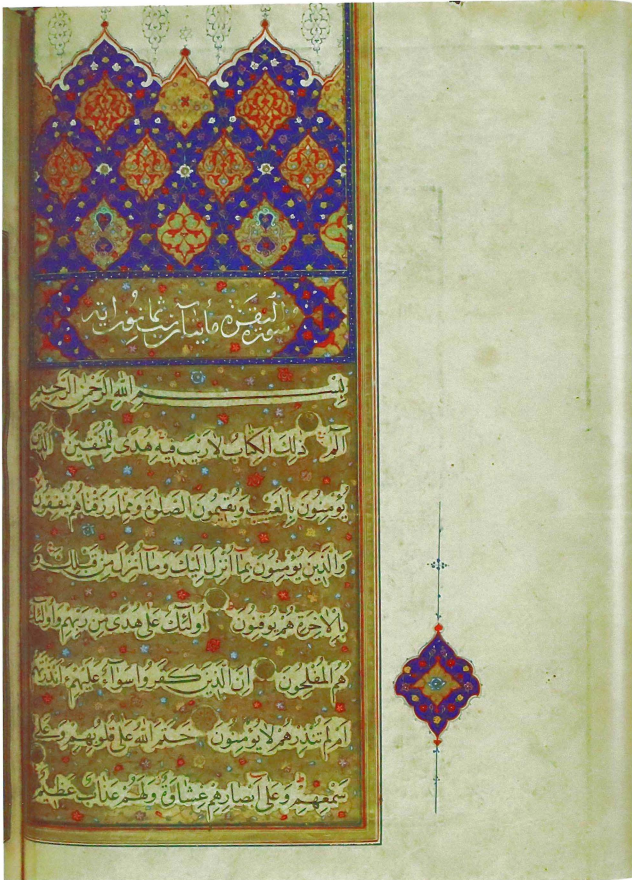 سورة البقرة مائتا آية وثمانون آية
بسم الله الرحمن الرحيم
الم ذلك الكتاب لا ريب فيه هدى للمتقين الذين
يؤمنون بالغيب ويقيمون الصلوة ومما رزقناهم ينفقون
والذين يؤمنون بما انزل اليك وما انزل من قبلك و
بالاخرة هم يوقنون اولئك على هدى من ربهم واولئك
هم المفلحون ان الذين كفروا سواء عليهم ءانذرتهم
ام لم تنذرهم لا يؤمنون ختم الله على قلوبهم وعلى
سمعهم وعلى ابصارهم غشاوة ولهم عذاب عظيم